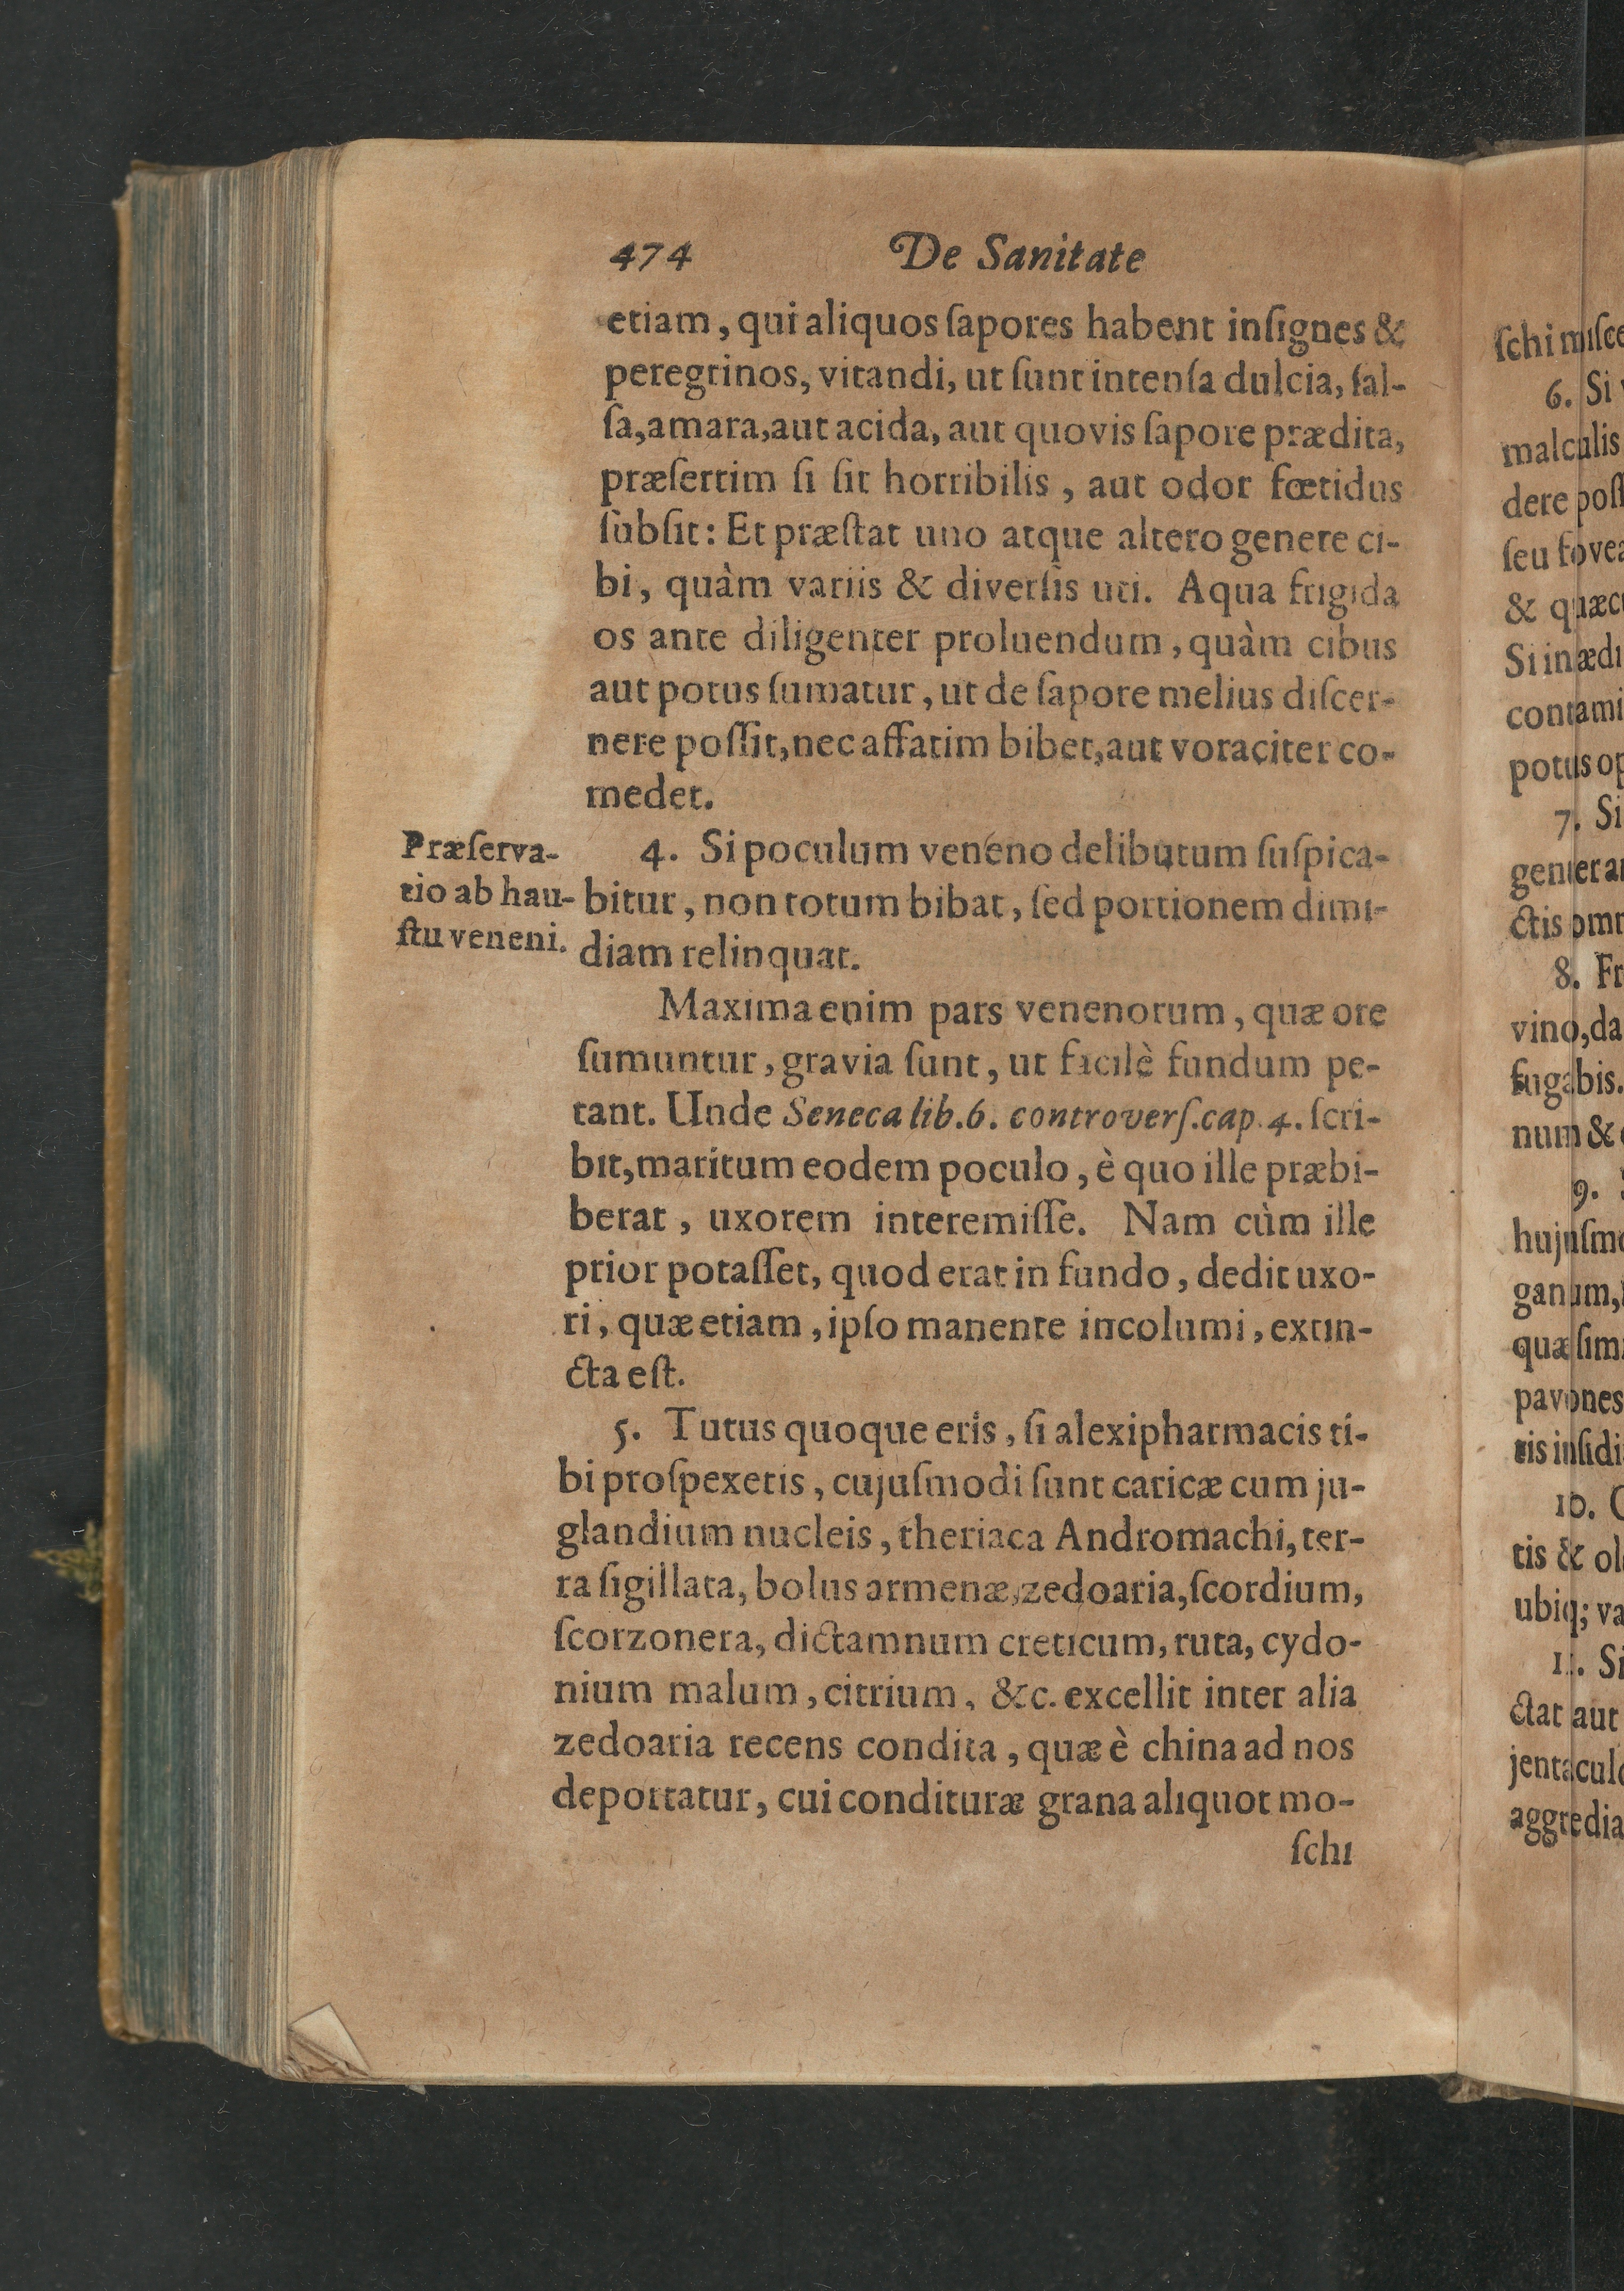 474 De Sanitate
etiam, qui aliquos ſapores habent inſignes &
peregrinos, vitandi, ut ſunt intenſa dulcia, ſal-
ſa, amara, aut acida, aut quovis ſapore prædita,
præſertim ſi ſit horribilis, aut odor fœtidus
ſubſit: Et præſtat uno atque altero genere ci-
bi, quàm variis & diverſis uti. Aqua frigida
os ante diligenter proluendum, quàm cibus
aut potus ſumatur, ut de ſapore melius diſcer-
nere poſſit, nec affatim bibet, aut voraciter co-
medet.
Præſerva-
tio ab hau-
ſtu veneni.
4. Si poculum veneno delibutum ſuſpica-
bitur, non totum bibat, ſed portionem dimi-
diam relinquat.
Maxima enim pars venenorum, quæ ore
ſumuntur, gravia ſunt, ut facilè fundum pe-
tant. Unde Seneca lib. 6. controverſ. cap. 4. ſcri-
bit, maritum eodem poculo, è quo ille præbi-
berat, uxorem interemiſſe. Nam cùm ille
prior potaſſet, quod erat in fundo, dedit uxo-
ri, quæ etiam, ipſo manente incolumi, extin-
cta eſt.
5. Tutus quoque eris, ſi alexipharmacis ti-
bi proſpexeris, cujuſmodi ſunt caricæ cum ju-
glandium nucleis, theriaca Andromachi, ter-
ra ſigillata, bolus armenæ, zedoaria, ſcordium,
ſcorzonera, dictamnum creticum, ruta, cydo-
nium malum, citrium, &c. excellit inter alia
zedoaria recens condita, quæ è china ad nos
deportatur, cui condituræ grana aliquot mo-
ſchi
ſchi miſce
6. Si
malculis
dere poſſ
ſeu fovea
& quæcu
Si in ædi
contami
potus op
7. Si
genter ar
ctis omn
8. Fr
vino, da
fugabis.
num &
9.
hujuſmo
ganum,
quæ ſim
pavones
tis inſidi
10.
tis & ol
ubiq; va
11. Si
ctat aut
jentacul
aggredia